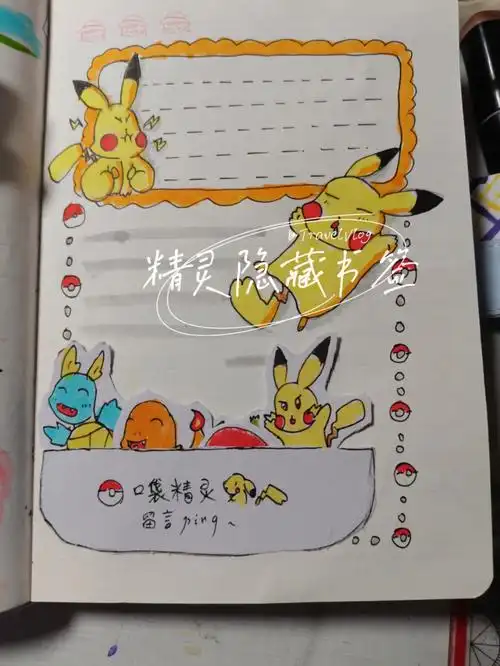 Travel Vlog
精灵隐藏书签
口袋精灵
留言ping~